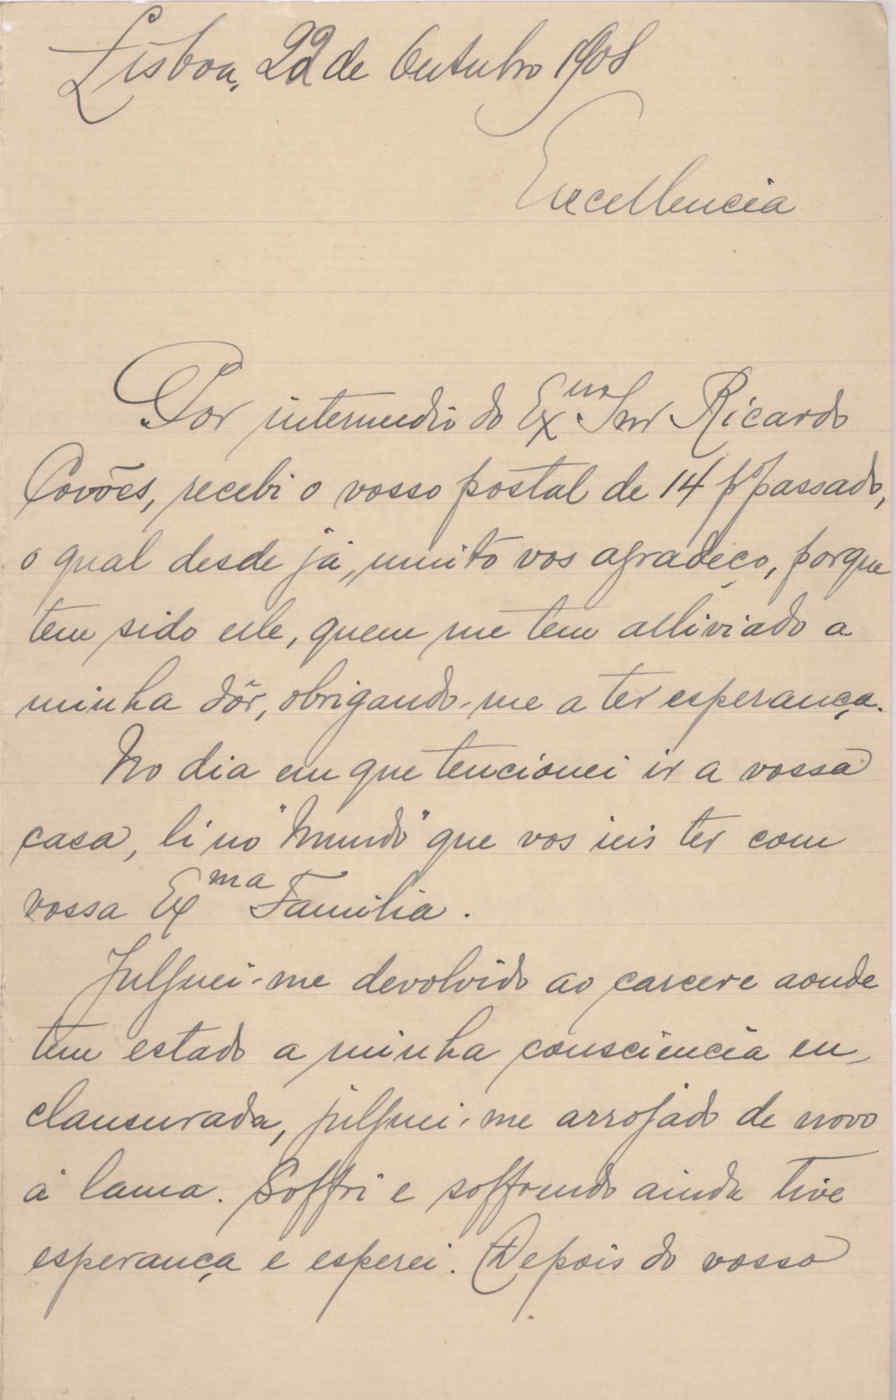 Lisboa, 22 de Outubro 1908
Excellencia
Por intermedio do Exmo. Snr Ricardo
Covões, recebi o vosso postal de 14 p. passado,
o qual desde já, muito vos agradeço, porque
tem sido elle, quem me tem alliviado a
minha dôr, obrigando-me a ter esperança.
No dia em que tencionei ir a vossa
casa, li no "Mundo" que vos ieis ter com
vossa Exma Familia.
Julguei-me devolvido ao carcere aonde
tem estado a minha consciencia en-
clausurada, julguei-me arrojado de novo
á lama. Soffri e soffrendo ainda tive
esperança e esperei. Depois do vosso